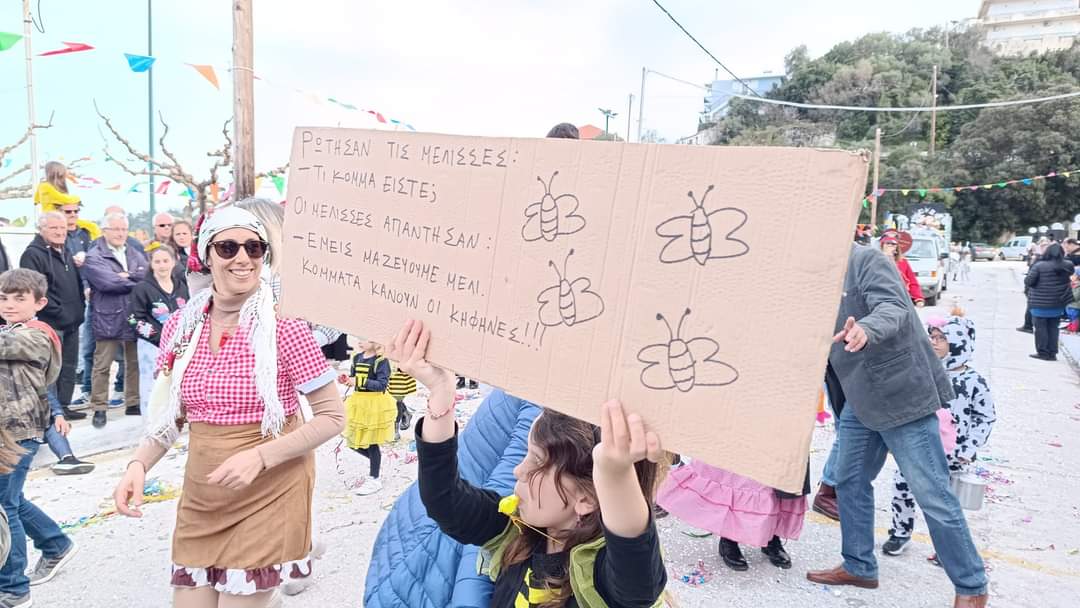 ΡΩΤΗΣΑΝ ΤΙΣ ΜΕΛΙΣΣΕΣ:
- ΤΙ ΚΟΜΜΑ ΕΙΣΤΕ;
ΟΙ ΜΕΛΙΣΣΕΣ ΑΠΑΝΤΗΣΑΝ:
- ΕΜΕΙΣ ΜΑΖΕΥΟΥΜΕ ΜΕΛΙ.
ΚΟΜΜΑΤΑ ΚΑΝΟΥΝ ΟΙ ΚΗΦΗΝΕΣ!!!